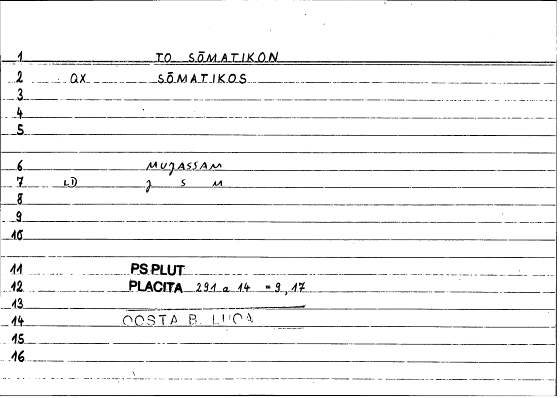 1 TO SŌMATIKON
2 QX SŌMATIKOS
3
4
5
6 MUJASSAM
7 LD J S M
8
9
10
11 PS PLUT
12 PLACITA 291 a 14 = 9, 17
13
14 QOSTA B. LUCA
15
16